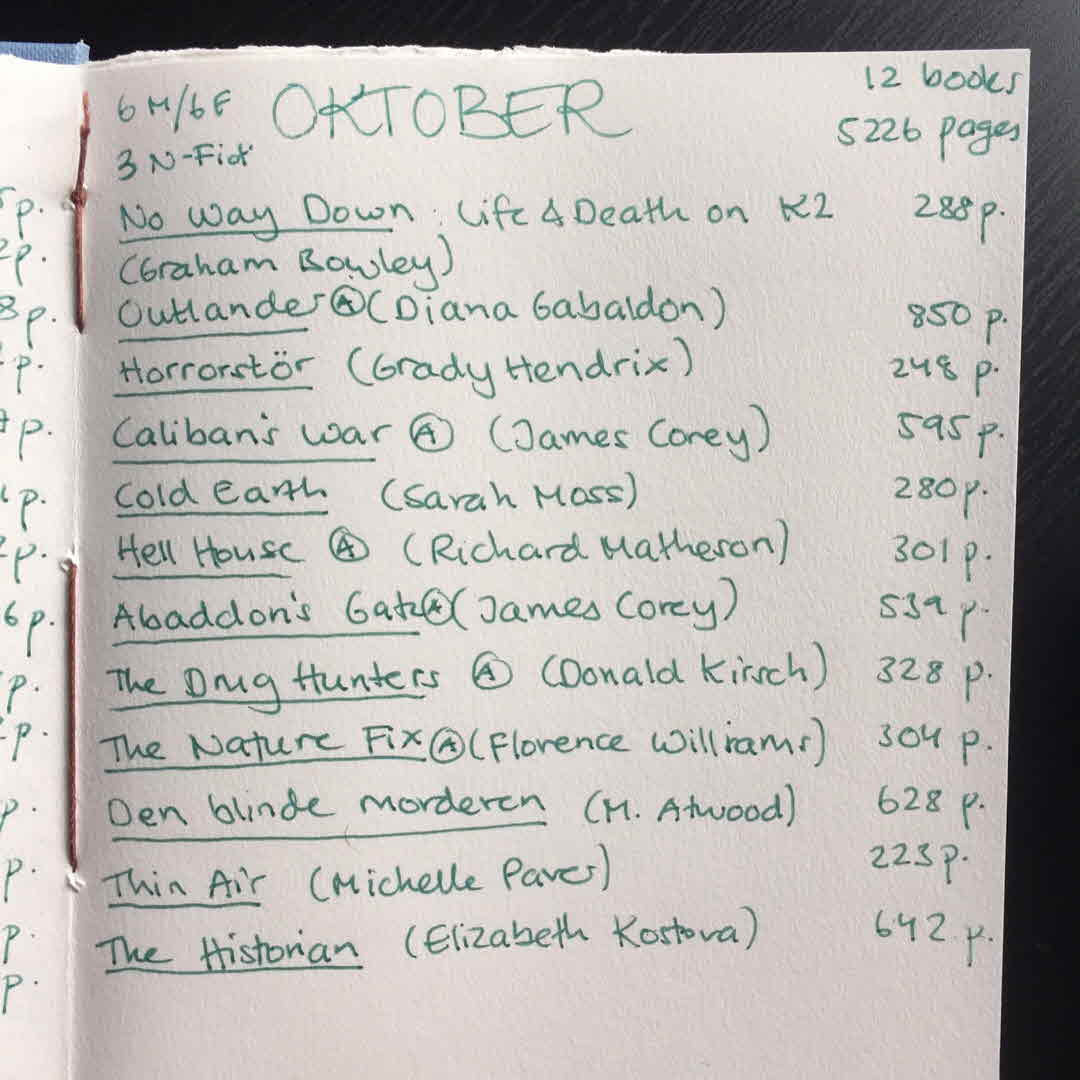 6 M/6F OKTOBER 12 books
3 N-Fict 5226 pages
No Way Down: Life & Death on K2 288 p.
(Graham Bowley)
Outlander Ⓐ (Diana Gabaldon) 850 p.
Horrorstör (Grady Hendrix) 248 p.
Caliban's War Ⓐ (James Corey) 595 p.
Cold Earth (Sarah Moss) 280 p.
Hell House Ⓐ (Richard Matheson) 301 p.
Abaddon's Gate Ⓐ (James Corey) 539 p.
The Drug Hunters Ⓐ (Donald Kirsch) 328 p.
The Nature Fix Ⓐ (Florence Williams) 304 p.
Den blinde morderen (M. Atwood) 628 p.
Thin Air (Michelle Paver) 223 p.
The Historian (Elizabeth Kostova) 642 p.